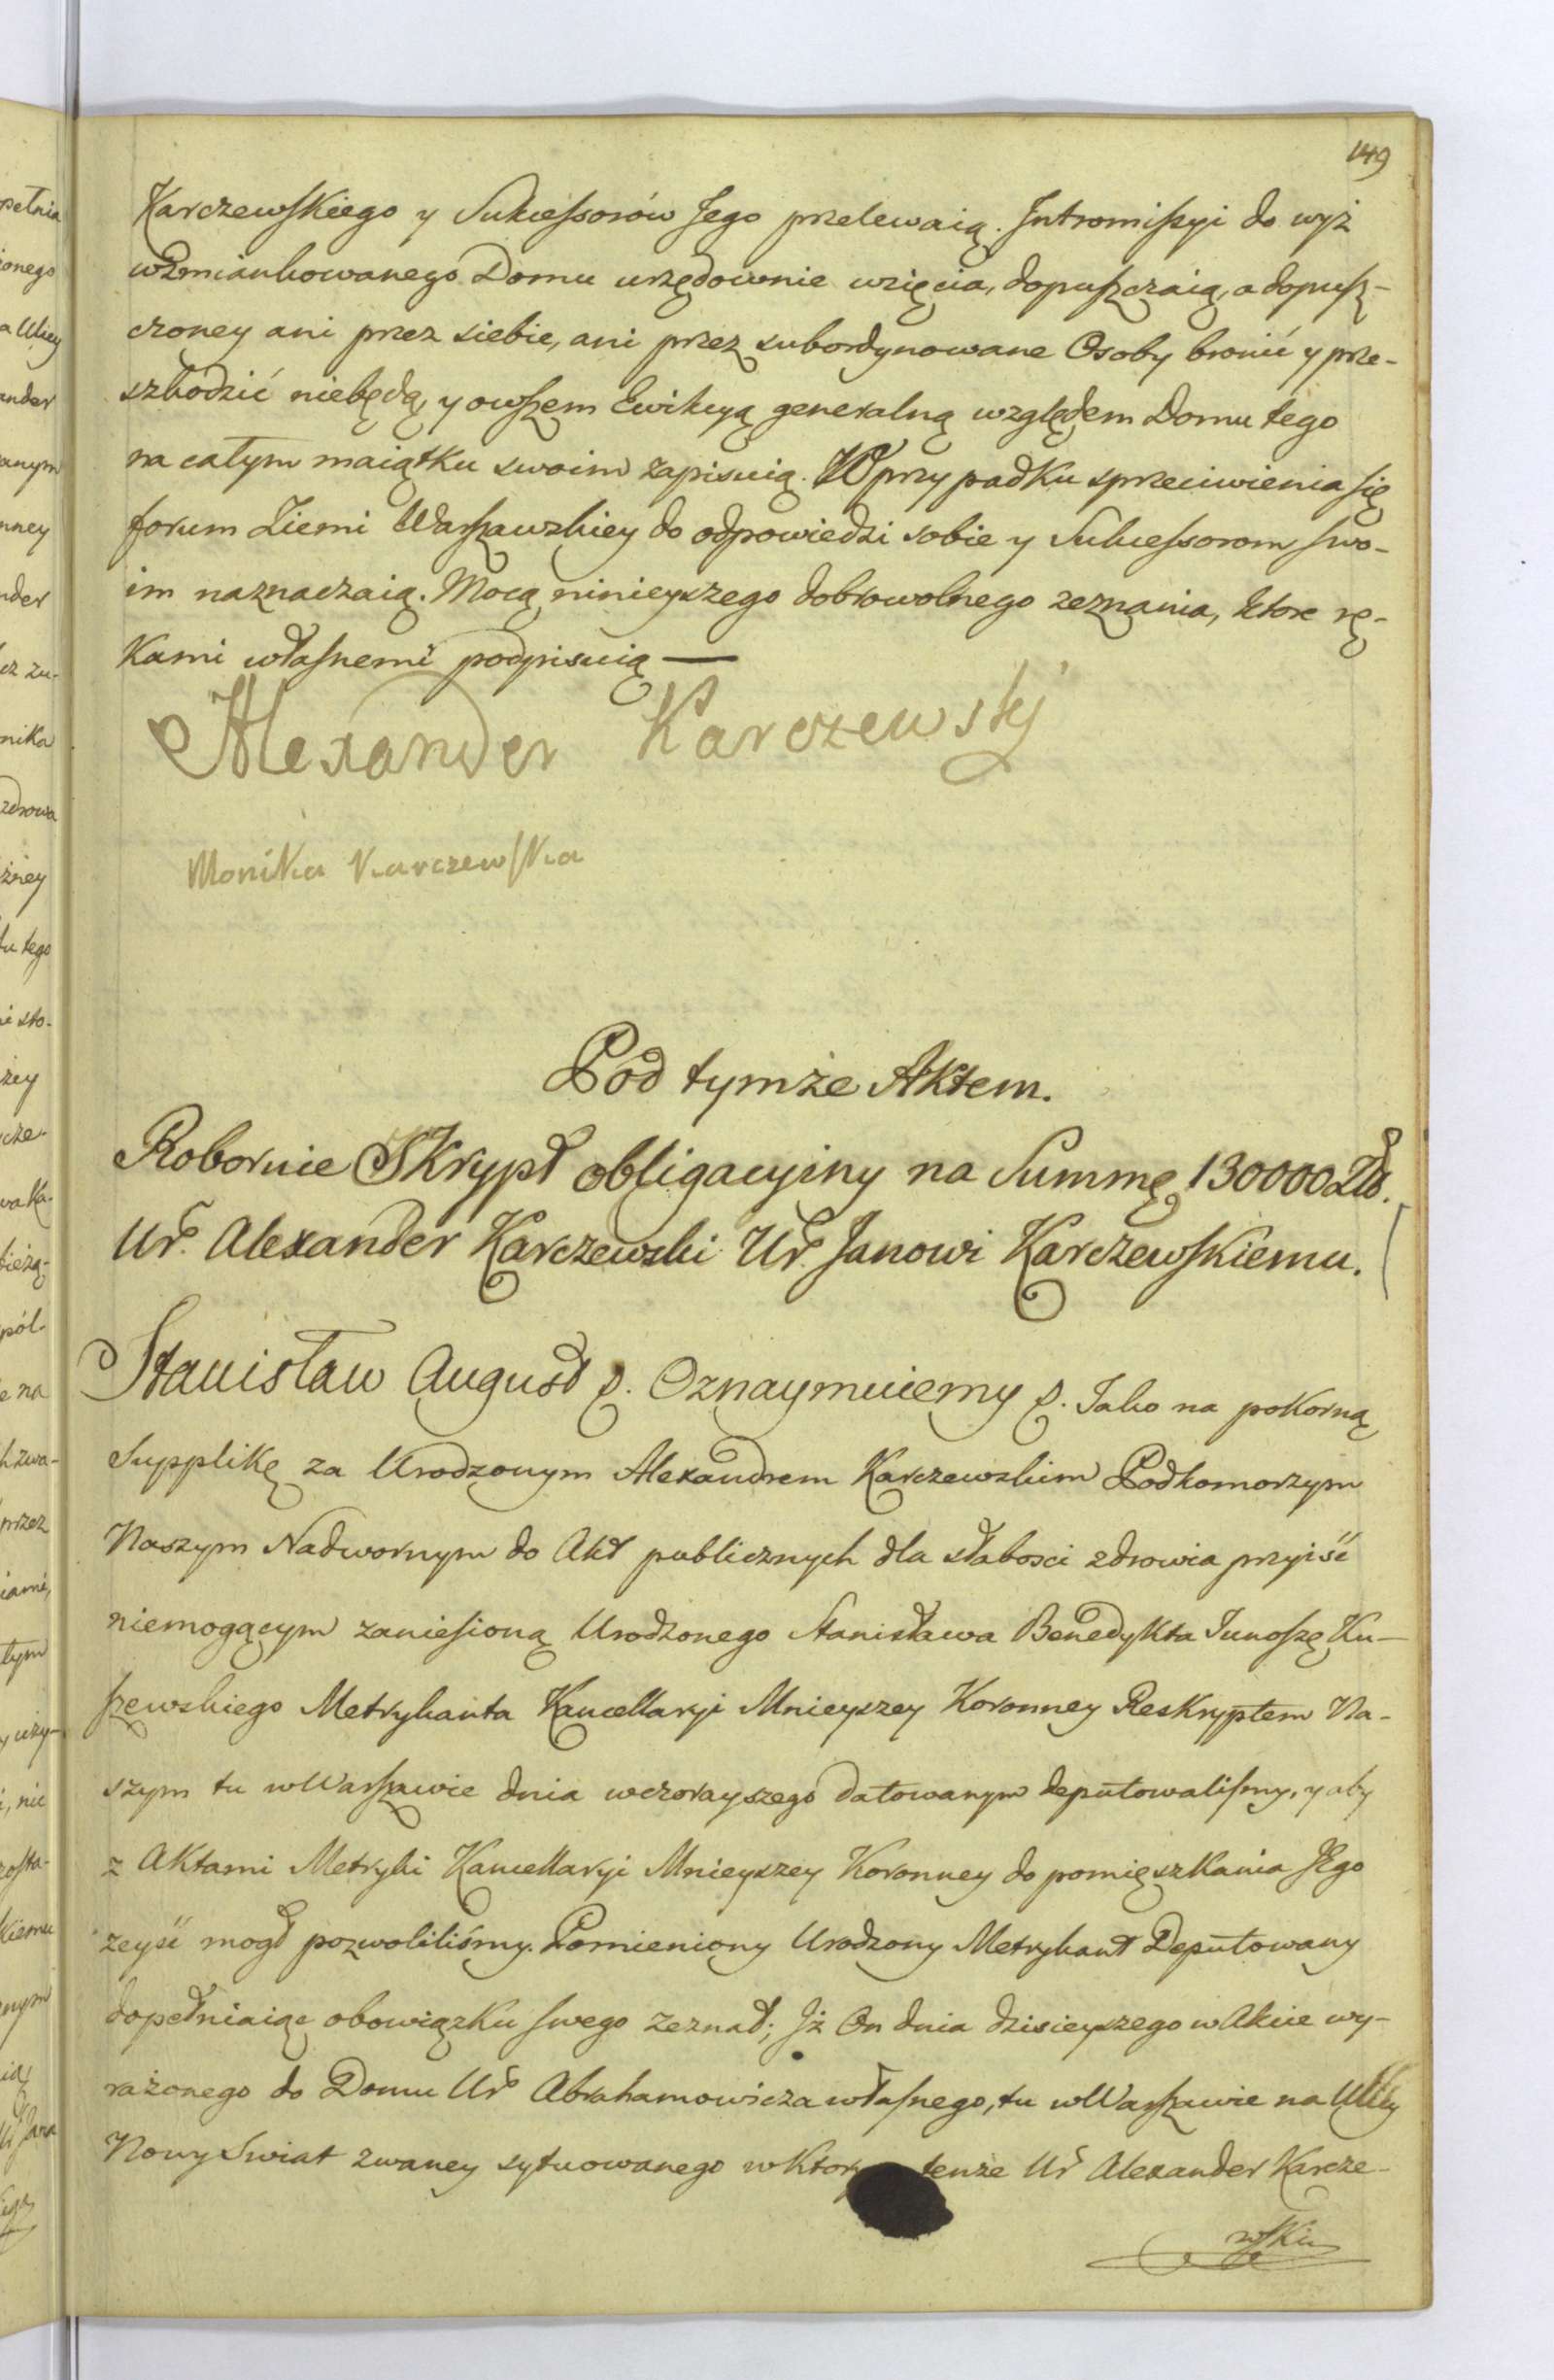 149
Karczewſkiego y Sukceſsorów Jego przelewaią. Intromiſsyi do wyż
wzmiankowanego Domu urzędownie wzięcia, dopuſzczaią, a dopuſz-
czoney ani przez siebie, ani przez subordynowane Osoby bronić y prze-
szkodzić niebędą, y owſzem Ewikcyą generalną względem Domu tego
na całym maiątku swoim zapisuią. W przypadku sprzeciwienia się
forum Ziemi Warſzawskiey do odpowiedzi sobie y Sukceſsorom ſwo-
im naznaczaią. Mocą ninieyszego dobrowolnego zeznania, ktore rę-
kami właſnemi podpisuią —
Alexander Karczewskj
Monika Karczewſka
Pod tymże Aktem.
Roboruie Skrypt obligacyiny na Summę 130000 Złł.
Ur. Alexander Karczewski Ur. Janowi Karczewſkiemu.
Stanisław August &. Oznaymuiemy &. Jako na pokorną
Supplikę za Urodzonym Alexandrem Karczewskim Podkomorzym
Naszym Nadwornym do Akt publicznych dla słabosci zdrowia przyiść
niemogącym zanieſioną Urodzonego Stanisława Benedykta Junoſzę Ku-
ſzewskiego Metrykanta Kancellaryi Mnieyszey Koronney Reskryptem Na-
szym tu w Warſzawie dnia wczorayszego datowanym deputowaliſmy, y aby
z Aktami Metryki Kancellaryi Mnieyszey Koronney do pomięszkania Jego
zeyść mogł pozwoliliśmy. Pomieniony Urodzony Metrykant Deputowany
dopełniaiąc obowiązku ſwego zeznał; Iż On dnia dzisieyszego w Akcie wy-
rażonego do Domu Ur Abrahamowicza właſnego, tu w Warſzawie na Ulicy
Nowy Swiat zwaney sytuowanego w ktor tenże Ur Alexander Karcze-
wſki